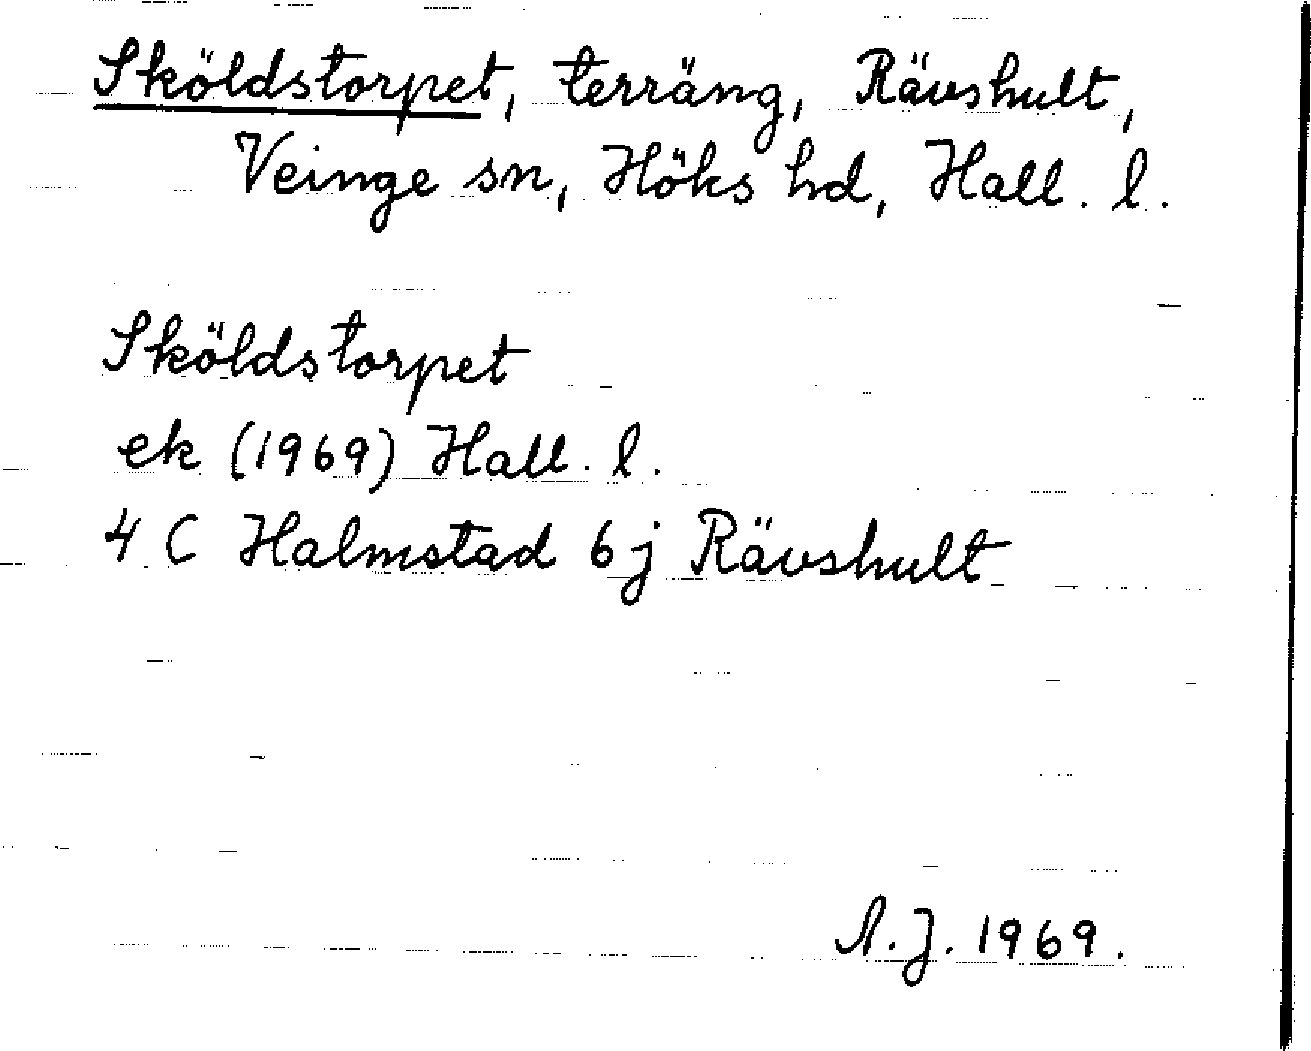 Sköldstorpet, terräng, Rävshult,
Veinge sn, Höks hd, Hall. l.
Sköldstorpet
ek (1969) Hall. l.
4 C Halmstad 6 j Rävshult
A. J. 1969.